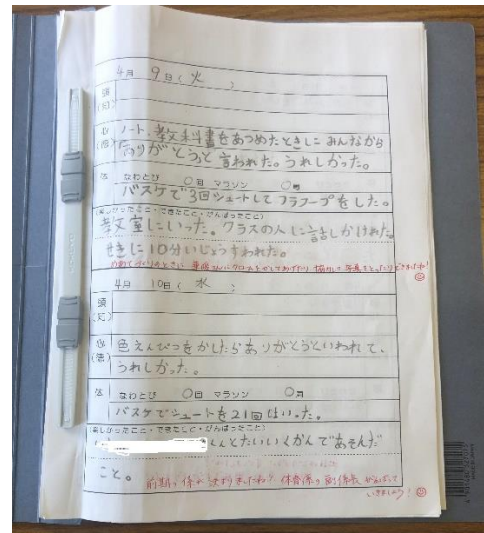 4月 9日(火)
頭
(知)
心
(徳)
ノート、教科書をあつめたときに みんなから
ありがとうと言われた。うれしかった。
体 なわとび 〇回 マラソン 〇周
バスケで3回シュートしてフラフープをした。
(楽しかったこと・できたこと・がんばったこと)
教室にいった。クラスの人に話しかけれた。
せきに10分いじょうすわれた。
4月 10日(水)
頭
(知)
心
(徳)
色えんぴつをかしたらありがとうといわれて、
うれしかった。
体 なわとび 〇回 マラソン 〇周
バスケでシュートを21回はいった。
(楽しかったこと・できたこと・がんばったこと)
くんとたいいくかんであそんだ
こと。
前期の係が決まりましたね! 体育係の副係長、がんばって
いきましょう!